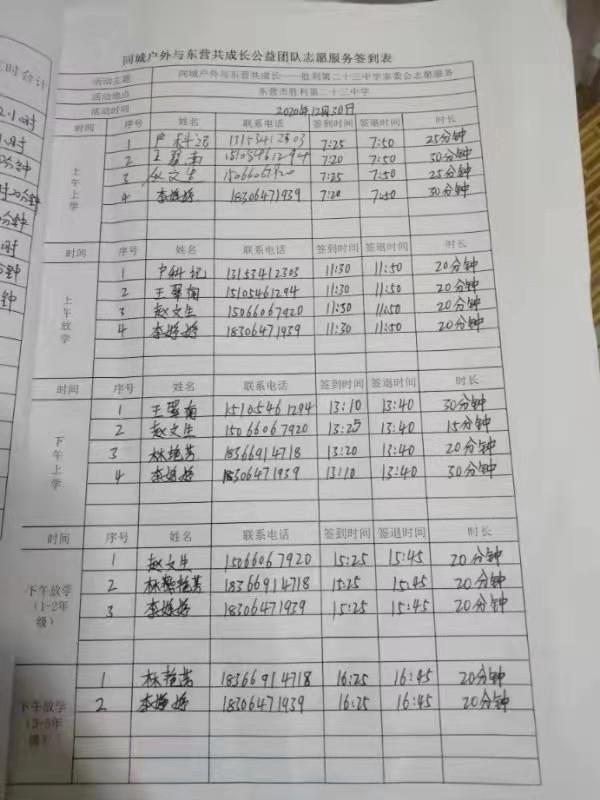 同城户外与东营共成长公益团队志愿服务签到表
活动主题 同城户外与东营共成长——胜利第二十三中学家委会志愿服务
活动地点 东营市胜利第二十三中学
活动时间 2020年12月30日
时间 序号 姓名 联系电话 签到时间 签退时间 时长
上午上学
1 卢科记 13153412303 7:25 7:50 25分钟
2 王翠菊 15105461294 7:20 7:50 30分钟
3 赵文生 15066067920 7:25 7:50 25分钟
4 李婷婷 18306471939 7:20 7:50 30分钟
时间 序号 姓名 联系电话 签到时间 签退时间 时长
上午放学
1 卢科记 13153412303 11:30 11:50 20分钟
2 王翠菊 15105461294 11:30 11:50 20分钟
3 赵文生 15066067920 11:50 20分钟
4 李婷婷 18306471939 11:30 11:50 20分钟
时间 序号 姓名 联系电话 签到时间 签退时间 时长
下午上学
1 王翠菊 15105461294 13:10 13:40 30分钟
2 赵文生 15066067920 13:25 13:40 15分钟
3 林艳芳 18366914718 13:20 13:40 20分钟
4 李婷婷 18306471939 13:10 13:40 30分钟
时间 序号 姓名 联系电话 签到时间 签退时间 时长
下午放学
(1-2年
级)
1 赵文生 15066067920 15:25 15:45 20分钟
2 林艳芳 18366914718 15:25 15:45 20分钟
3 李婷婷 18306471939 15:25 15:45 20分钟
下午放学
1 林艳芳 18366914718 16:25 16:45 20分钟
2 李婷婷 18306471939 16:25 16:45 20分钟